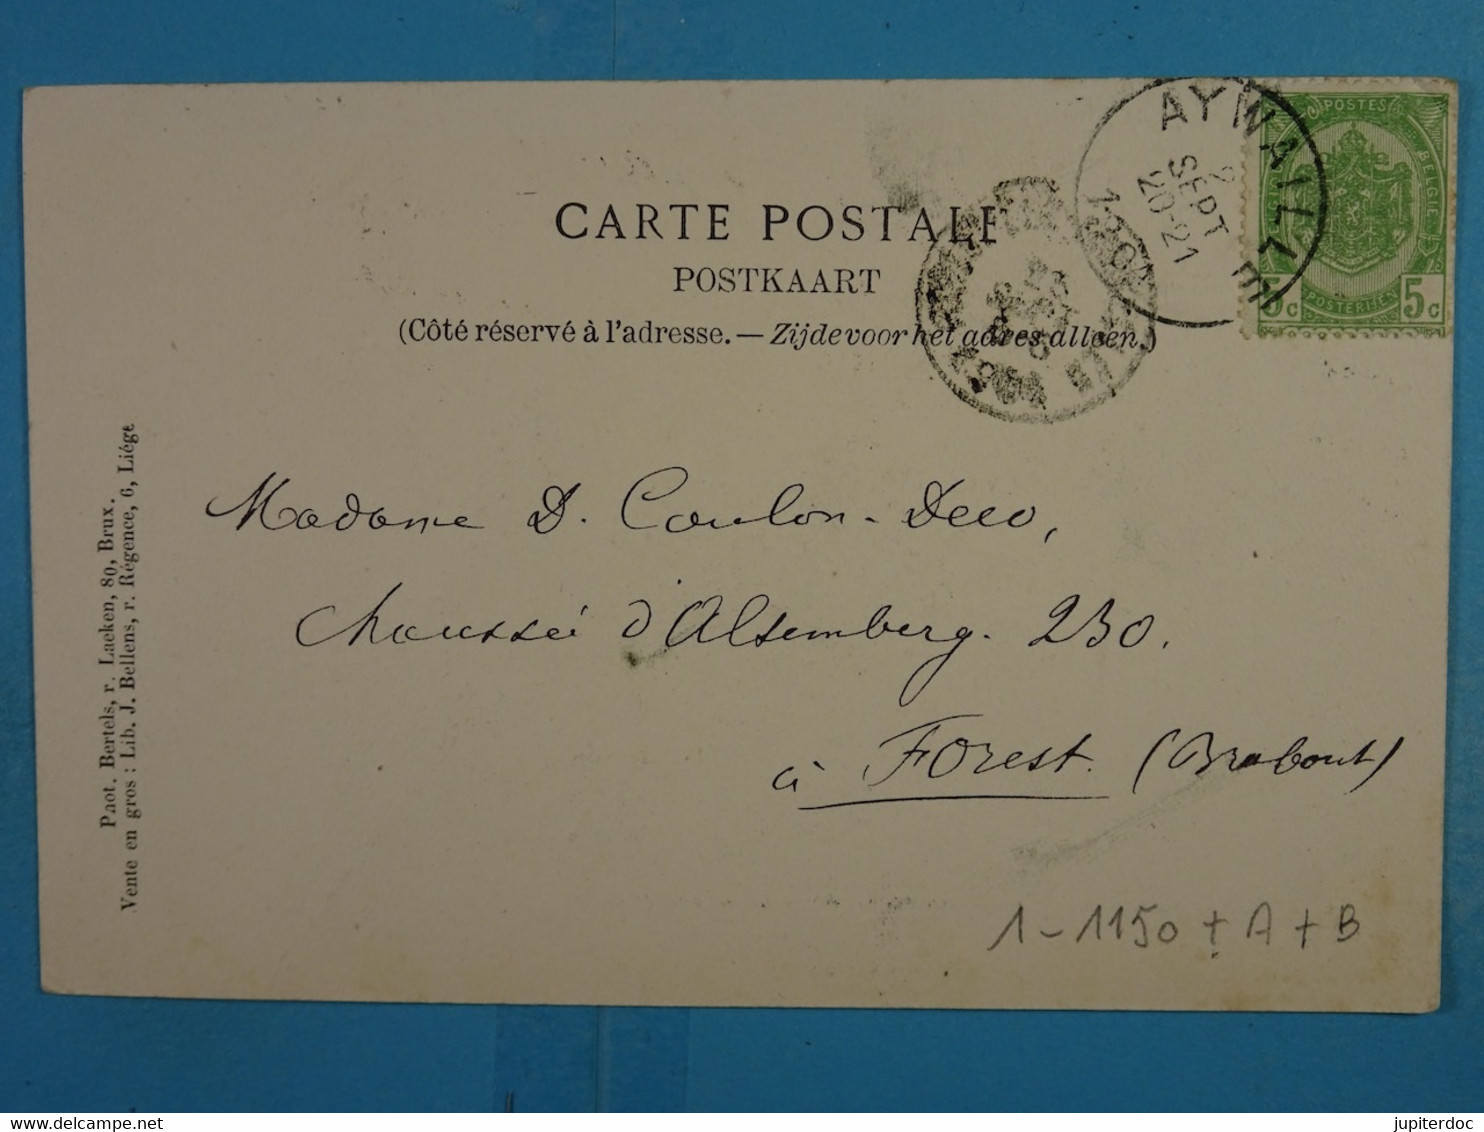 CARTE POSTALE
POSTKAART
(Côté réservé à l'adresse. — Zijde voor het adres alleen.)
AYWAILLE
2
SEPT
20-21
POSTES
BELGIE
5c POSTERIJEN 5c
Madame D. Coulon-Deco,
Chaussée d'Alsemberg. 230.
à Forest. (Brabant)
1-1150 + A + B
Phot. Bertels, r. Laeken, 80, Brux.
Vente en gros : Lib. J. Bellens, r. Régence, 6, Liége
delcampe.net
jupiterdoc